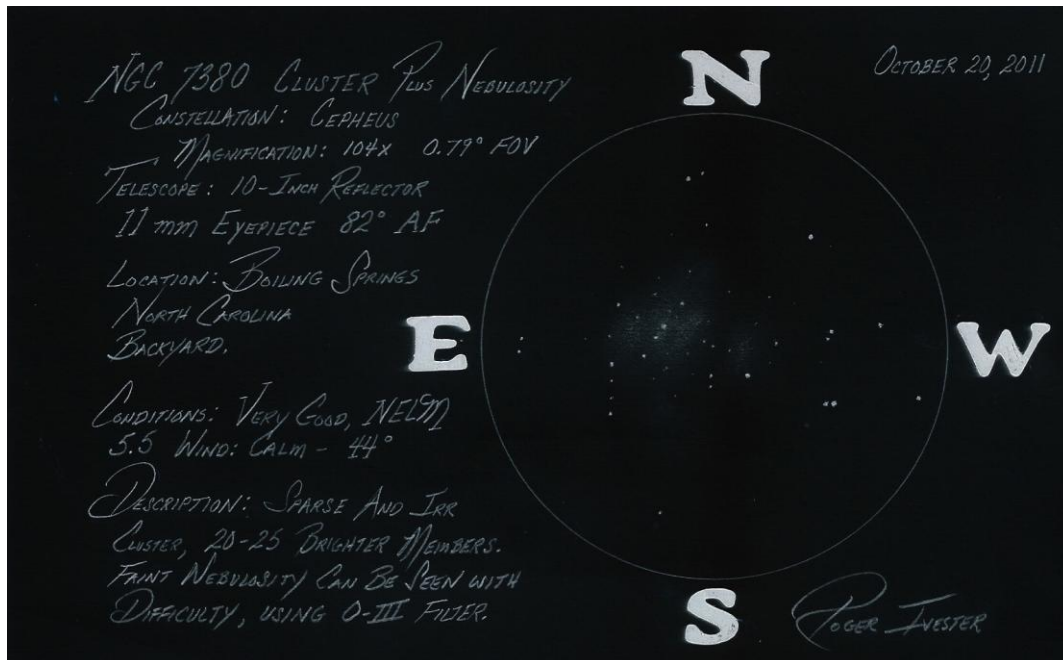 NGC 7380 Cluster Plus Nebulosity
Constellation: Cepheus
Magnification: 104x 0.79° FOV
Telescope: 10-Inch Reflector
11 mm Eyepiece 82° AF
Location: Boiling Springs
North Carolina
Backyard.
Conditions: Very Good, NELM
5.5 Wind: Calm - 44°
Description: Sparse And Irr
Cluster, 20-25 Brighter Members.
Faint Nebulosity Can Be Seen with
Difficulty, using O-III Filter.
October 20, 2011
N
E
W
S
Roger Ivester